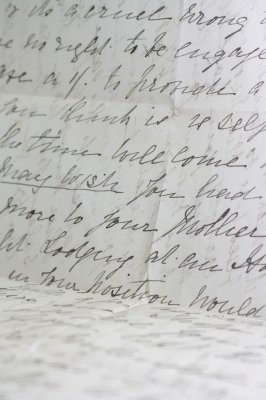 is a cruel wrong
no right to be engage
to provide a
You think is is self
the time will come
may wish you had
more to your Mother
Lodging at an Ho
in your position would